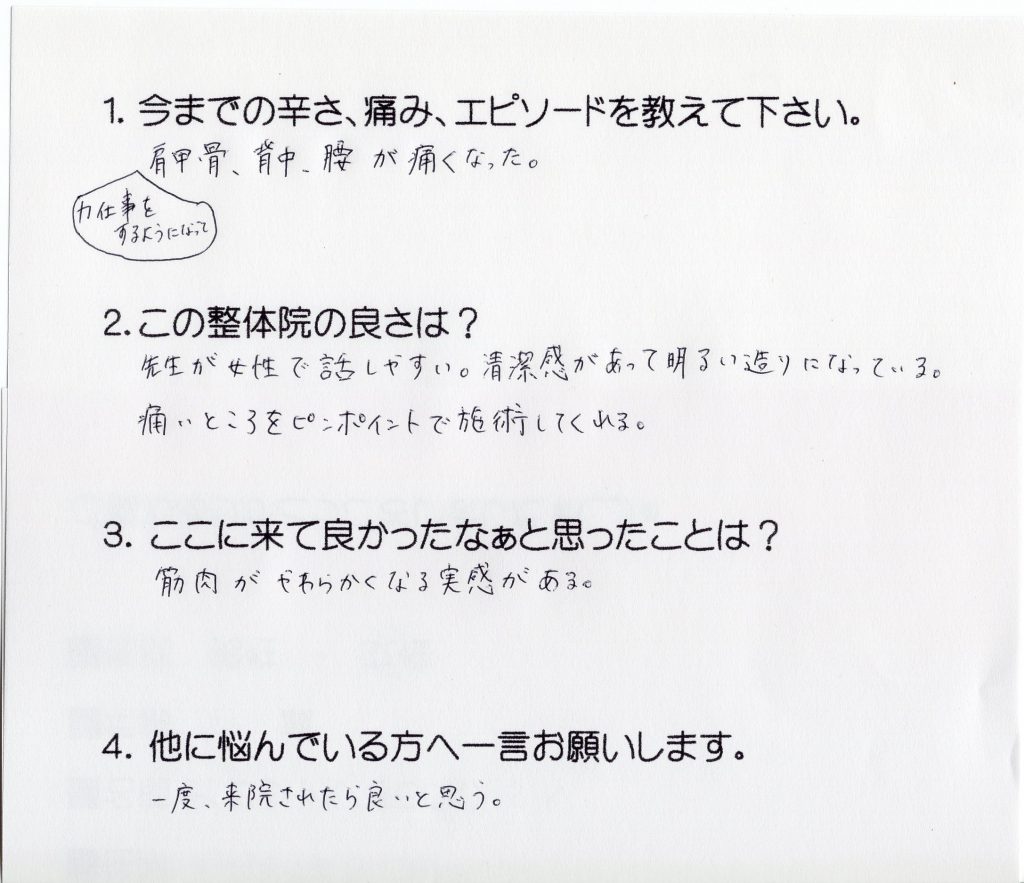 1. 今までの辛さ、痛み、エピソードを教えて下さい。
肩甲骨、背中、腰が痛くなった。
力仕事を
するようになって
2. この整体院の良さは？
先生が女性で話しやすい。清潔感があって明るい造りになっている。
痛いところをピンポイントで施術してくれる。
3. ここに来て良かったなぁと思ったことは？
筋肉がやわらかくなる実感がある。
4. 他に悩んでいる方へ一言お願いします。
一度、来院されたら良いと思う。